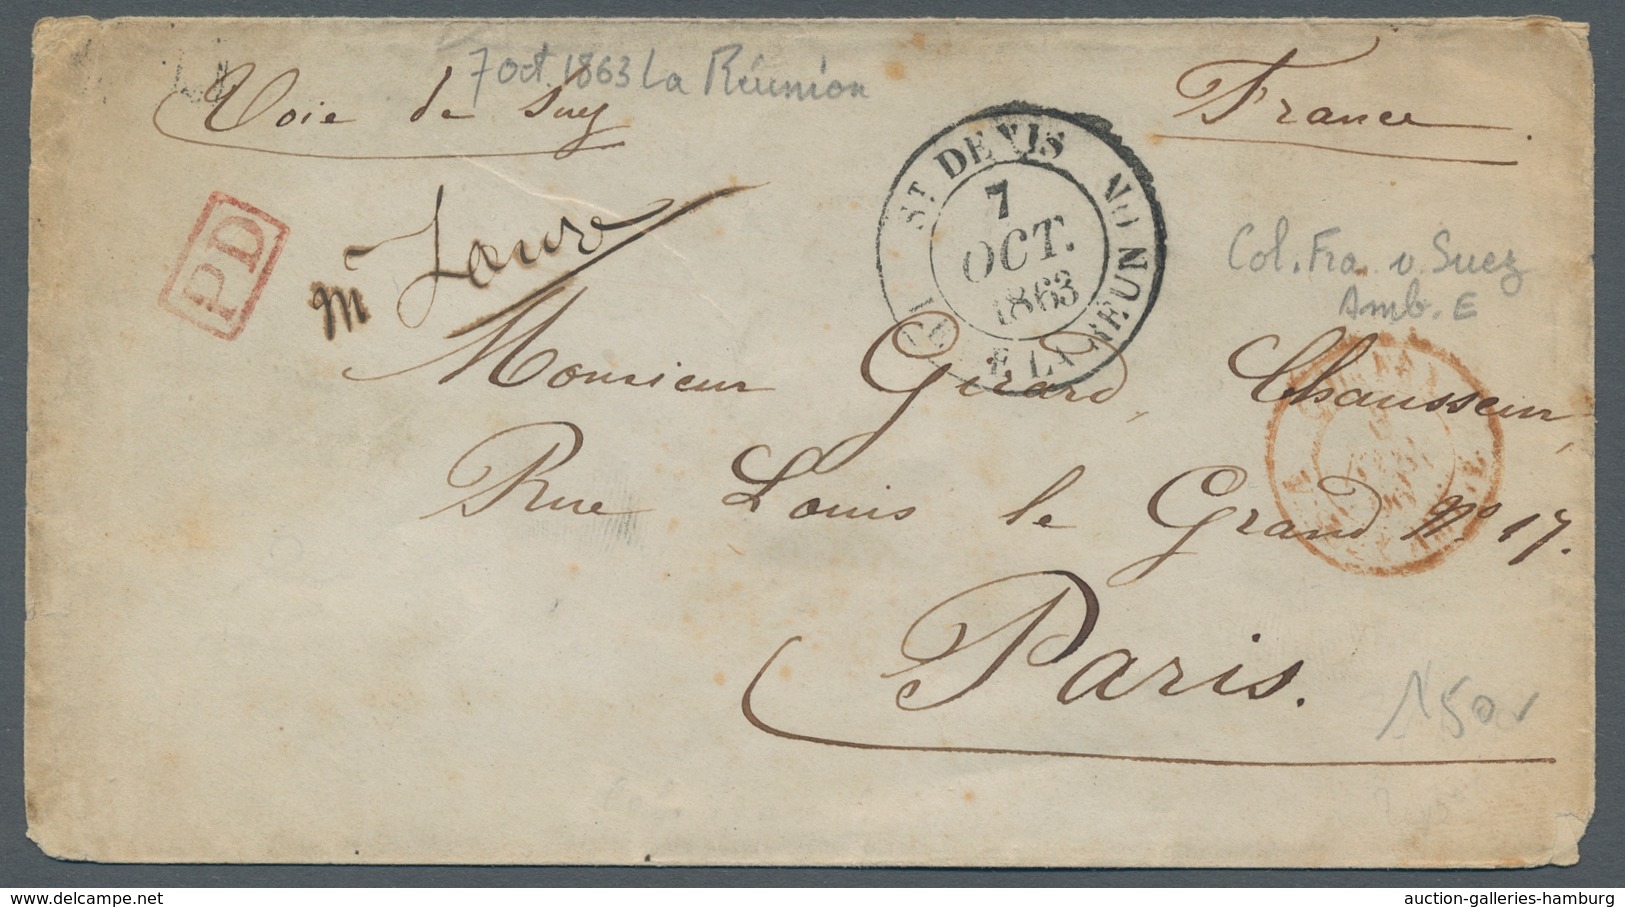 7 Oct 1863 La Réunion
Voie de Suez
France
ST DENIS
7
OCT.
1863
ILE DE LA RÉUNION
PD
Col. Fra. v. Suez
Amb. E
Monsieur Girard, Chausseur,
Rue Louis le Grand No 17.
Paris.
www.delcampe.net
auction-galleries-hamburg